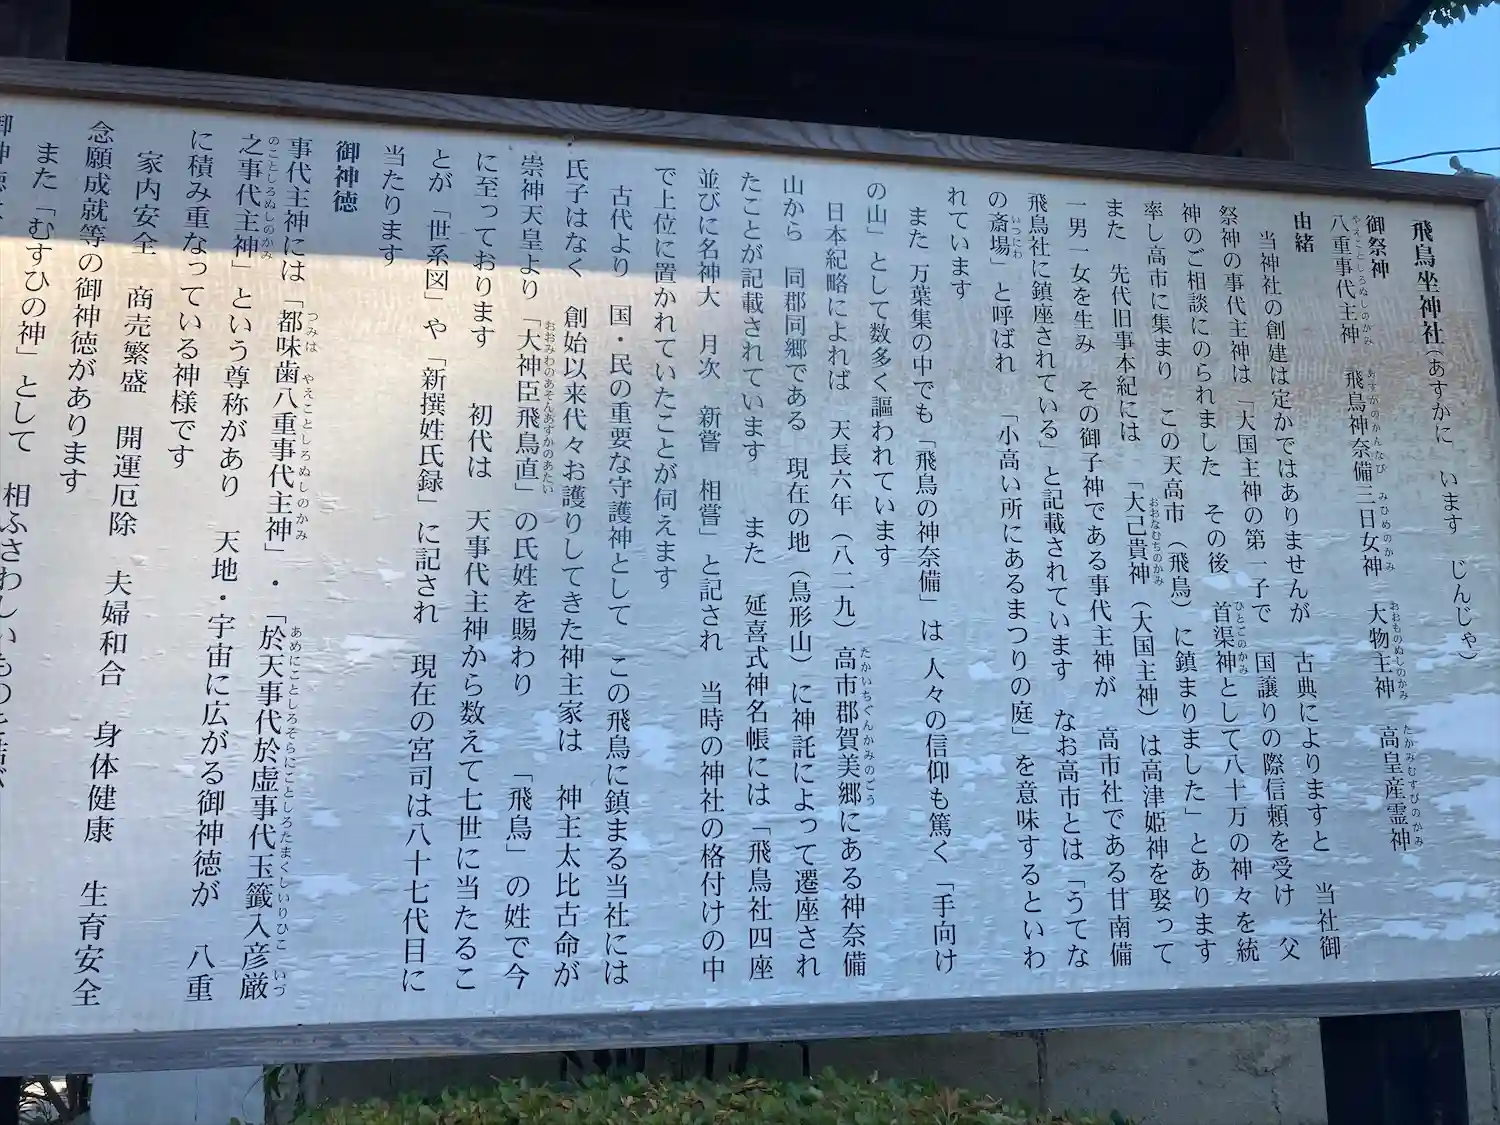 飛鳥坐神社(あすかに います じんじゃ)
御祭神
八重事代主神 飛鳥神奈備三日女神 大物主神 高皇産霊神
由緒
当神社の創建は定かではありませんが 古典によりますと 当社御
祭神の事代主神は「大国主神の第一子で 国譲りの際信頼を受け 父
神のご相談にのられました その後 首渠神として八十万の神々を統
率し高市に集まり この天高市(飛鳥)に鎮まりました」とあります
また 先代旧事本紀には 「大己貴神(大国主神)は高津姫神を娶って
一男一女を生み その御子神である事代主神が 高市社である甘南備
飛鳥社に鎮座されている」と記載されています なお高市とは「うてな
の斎場」と呼ばれ 「小高い所にあるまつりの庭」を意味するといわ
れています
また 万葉集の中でも「飛鳥の神奈備」は 人々の信仰も篤く「手向け
の山」として数多く謳われています
日本紀略によれば 天長六年(八二九)高市郡賀美郷にある神奈備
山から 同郡同郷である 現在の地(鳥形山)に神託によって遷座され
たことが記載されています また 延喜式神名帳には「飛鳥社四座
並びに名神大 月次 新嘗 相嘗」と記され 当時の神社の格付けの中
で上位に置かれていたことが伺えます
古代より 国・民の重要な守護神として この飛鳥に鎮まる当社には
氏子はなく 創始以来代々お護りしてきた神主家は 神主太比古命が
崇神天皇より「大神臣飛鳥直」の氏姓を賜わり 「飛鳥」の姓で今
に至っております 初代は 天事代主神から数えて七世に当たるこ
とが「世系図」や「新撰姓氏録」に記され 現在の宮司は八十七代目に
当たります
御神徳
事代主神には「都味歯八重事代主神」・「於天事代於虚事代玉籤入彦厳
之事代主神」という尊称があり 天地・宇宙に広がる御神徳が 八重
に積み重なっている神様です
家内安全 商売繁盛 開運厄除 夫婦和合 身体健康 生育安全
念願成就等の御神徳があります
また「むすひの神」として 相ふさわしいものを結び